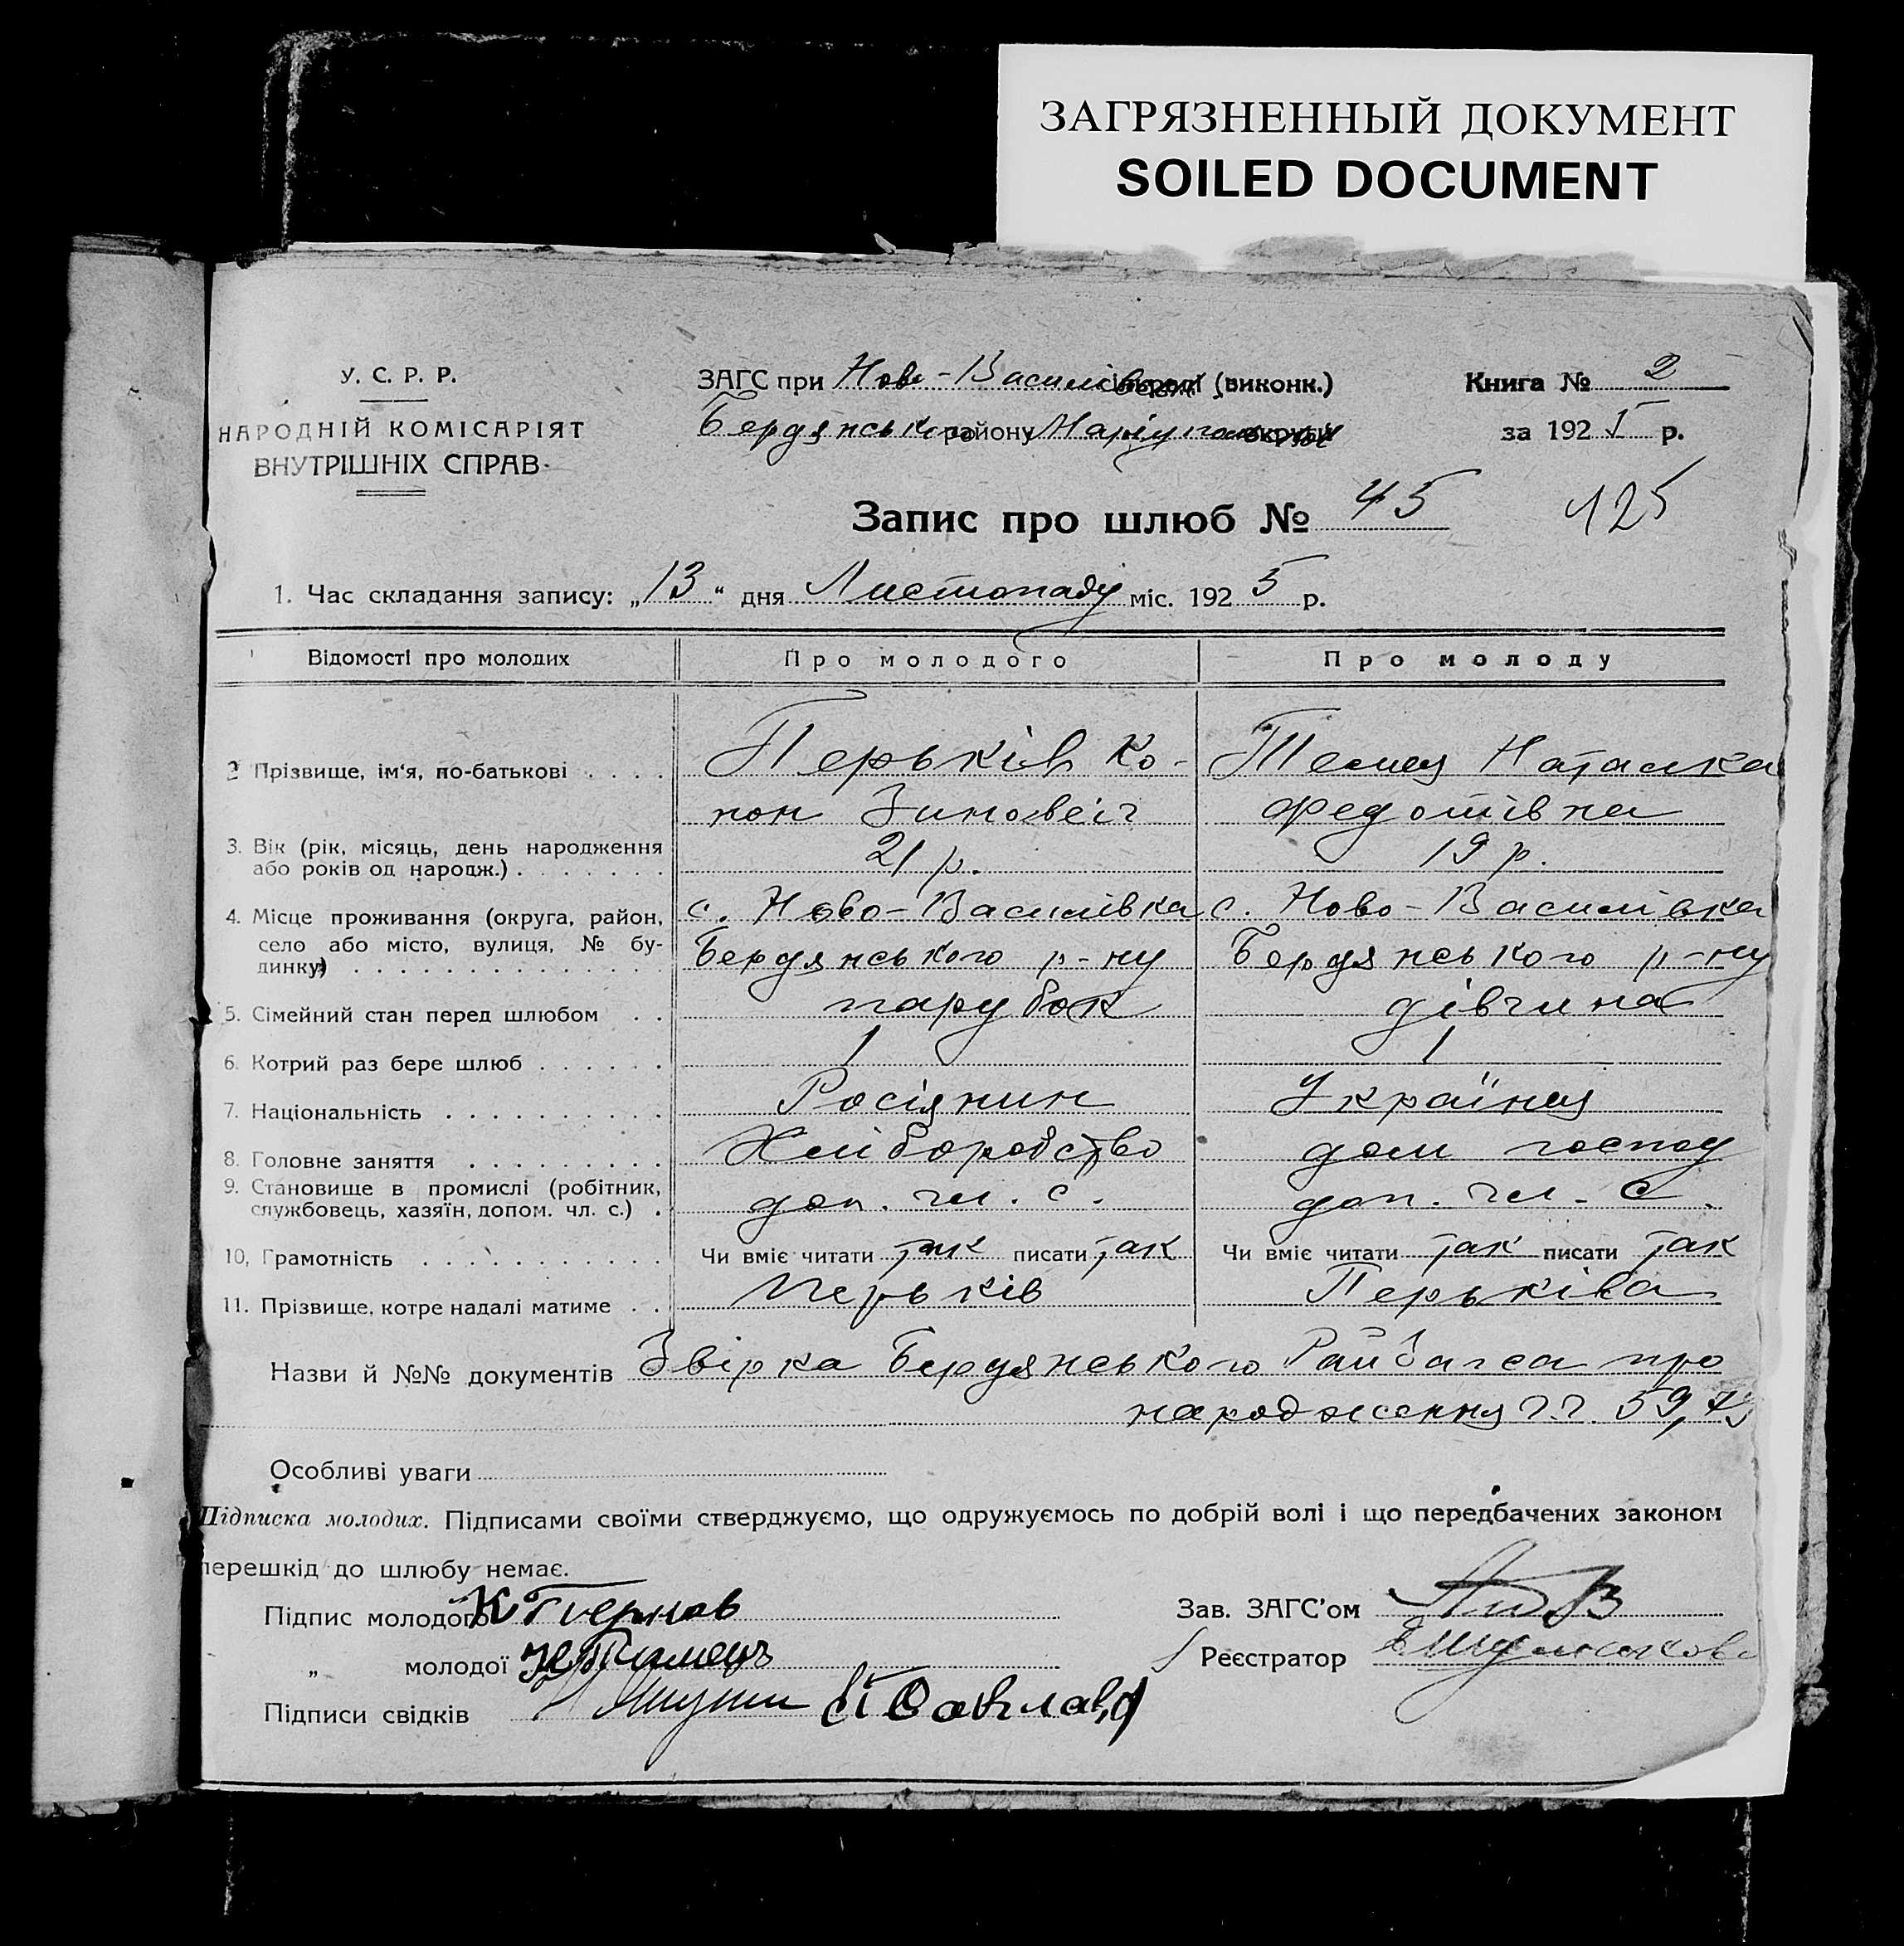 ЗАГРЯЗНЕННЫЙ ДОКУМЕНТ
SOILED DOCUMENT
У. С. Р. Р.
НАРОДНІЙ КОМІСАРІЯТ
ВНУТРІШНІХ СПРАВ
ЗАГС при Ново-Василівській сільраді (виконк.)
Бердянського району Маріупольської округи
Книга № 2
за 1925 р.
Запис про шлюб № 45
125
1. Час складання запису: „13“ дня Листопаду міс. 1925 р.
Відомості про молодих Про молодого Про молоду
2 Прізвище, ім'я, по-батькові . . . . Перьків Ко- Наталка
нон Зиновеіч Федотівна
3. Вік (рік, місяць, день народження
або років од народж.) . . . . . . . 21 р. 19 р.
4. Місце проживання (округа, район, с. Ново-Василівка с. Ново-Василівка
село або місто, вулиця, № бу-
динку) . . . . . . . . . . . . . . Бердянського р-ну Бердянського р-ну
5. Сімейний стан перед шлюбом . . парубок дівчина
6. Котрий раз бере шлюб . . . . . . 1 1
7. Національність . . . . . . . . . . Росіянин Українця
8. Головне заняття . . . . . . . . . Хліборобство дом господ
9. Становище в промислі (робітник,
службовець, хазяїн, допом. чл. с.) . доп. чл. с. доп. чл. с.
10, Грамотність . . . . . . . . . . . Чи вміє читати так писати так Чи вміє читати так писати так
11. Прізвище, котре надалі матиме . . Перьків Перьківа
Назви й №№ документів Звірка Бердянського Райзагса про
народження ч.ч. 59,
Особливі уваги
Підписка молодих. Підписами своїми стверджуємо, що одружуємось по добрій волі і що передбачених законом
перешкід до шлюбу немає.
Підпис молодого К
Зав. ЗАГС'ом
„ молодої
Реєстратор
Підписи свідків